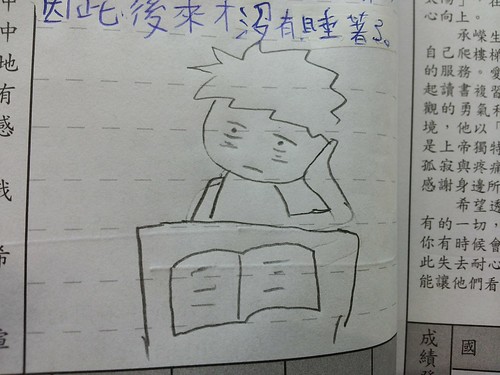 因此後來才沒有睡著了。
中
地
有
感
我
希
心向上。
承嶸生
自己爬樓梯
的服務。愛
起讀書複習
觀的勇氣和
境，他以「
是上帝獨特
孤寂與疼痛
感謝身邊所
希望透
有的一切，
你有時候會
此失去耐心
能讓他們看
成績
國